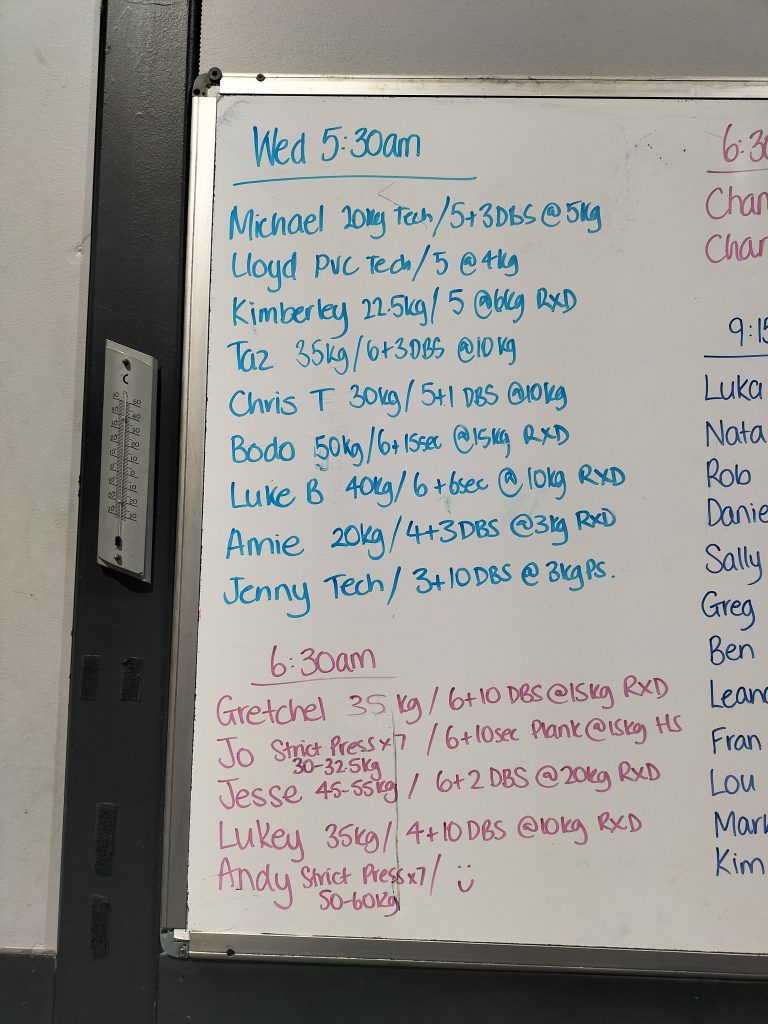 Wed 5:30am
Michael 20kg Tech/5+3DBS @5kg
Lloyd PVC Tech/5 @4kg
Kimberley 22.5kg/5 @6kg RXD
Taz 35kg/6+3DBS @10kg
Chris T 30kg/5+1 DBS @10kg
Bodo 50kg/6+15sec @15kg RXD
Luke B 40kg/6+6sec @10kg RXD
Amie 20kg/4+3DBS @3kg RXD
Jenny Tech/3+10DBS @3kg Ps.
6:30am
Gretchel 35kg/6+10 DBS @15kg RXD
Jo Strict Press x7 /6+10sec Plank @15kg HS
30-32.5kg
Jesse 45-55kg / 6+2 DBS @20kg RXD
Lukey 35kg/4+10DBS @10kg RXD
Andy Strict Press x7/ :)
50-60kg
6:30
Chan
Char
9:15
Luka
Nata
Rob
Danie
Sally
Greg
Ben
Leand
Fran
Lou
Mark
Kim
C